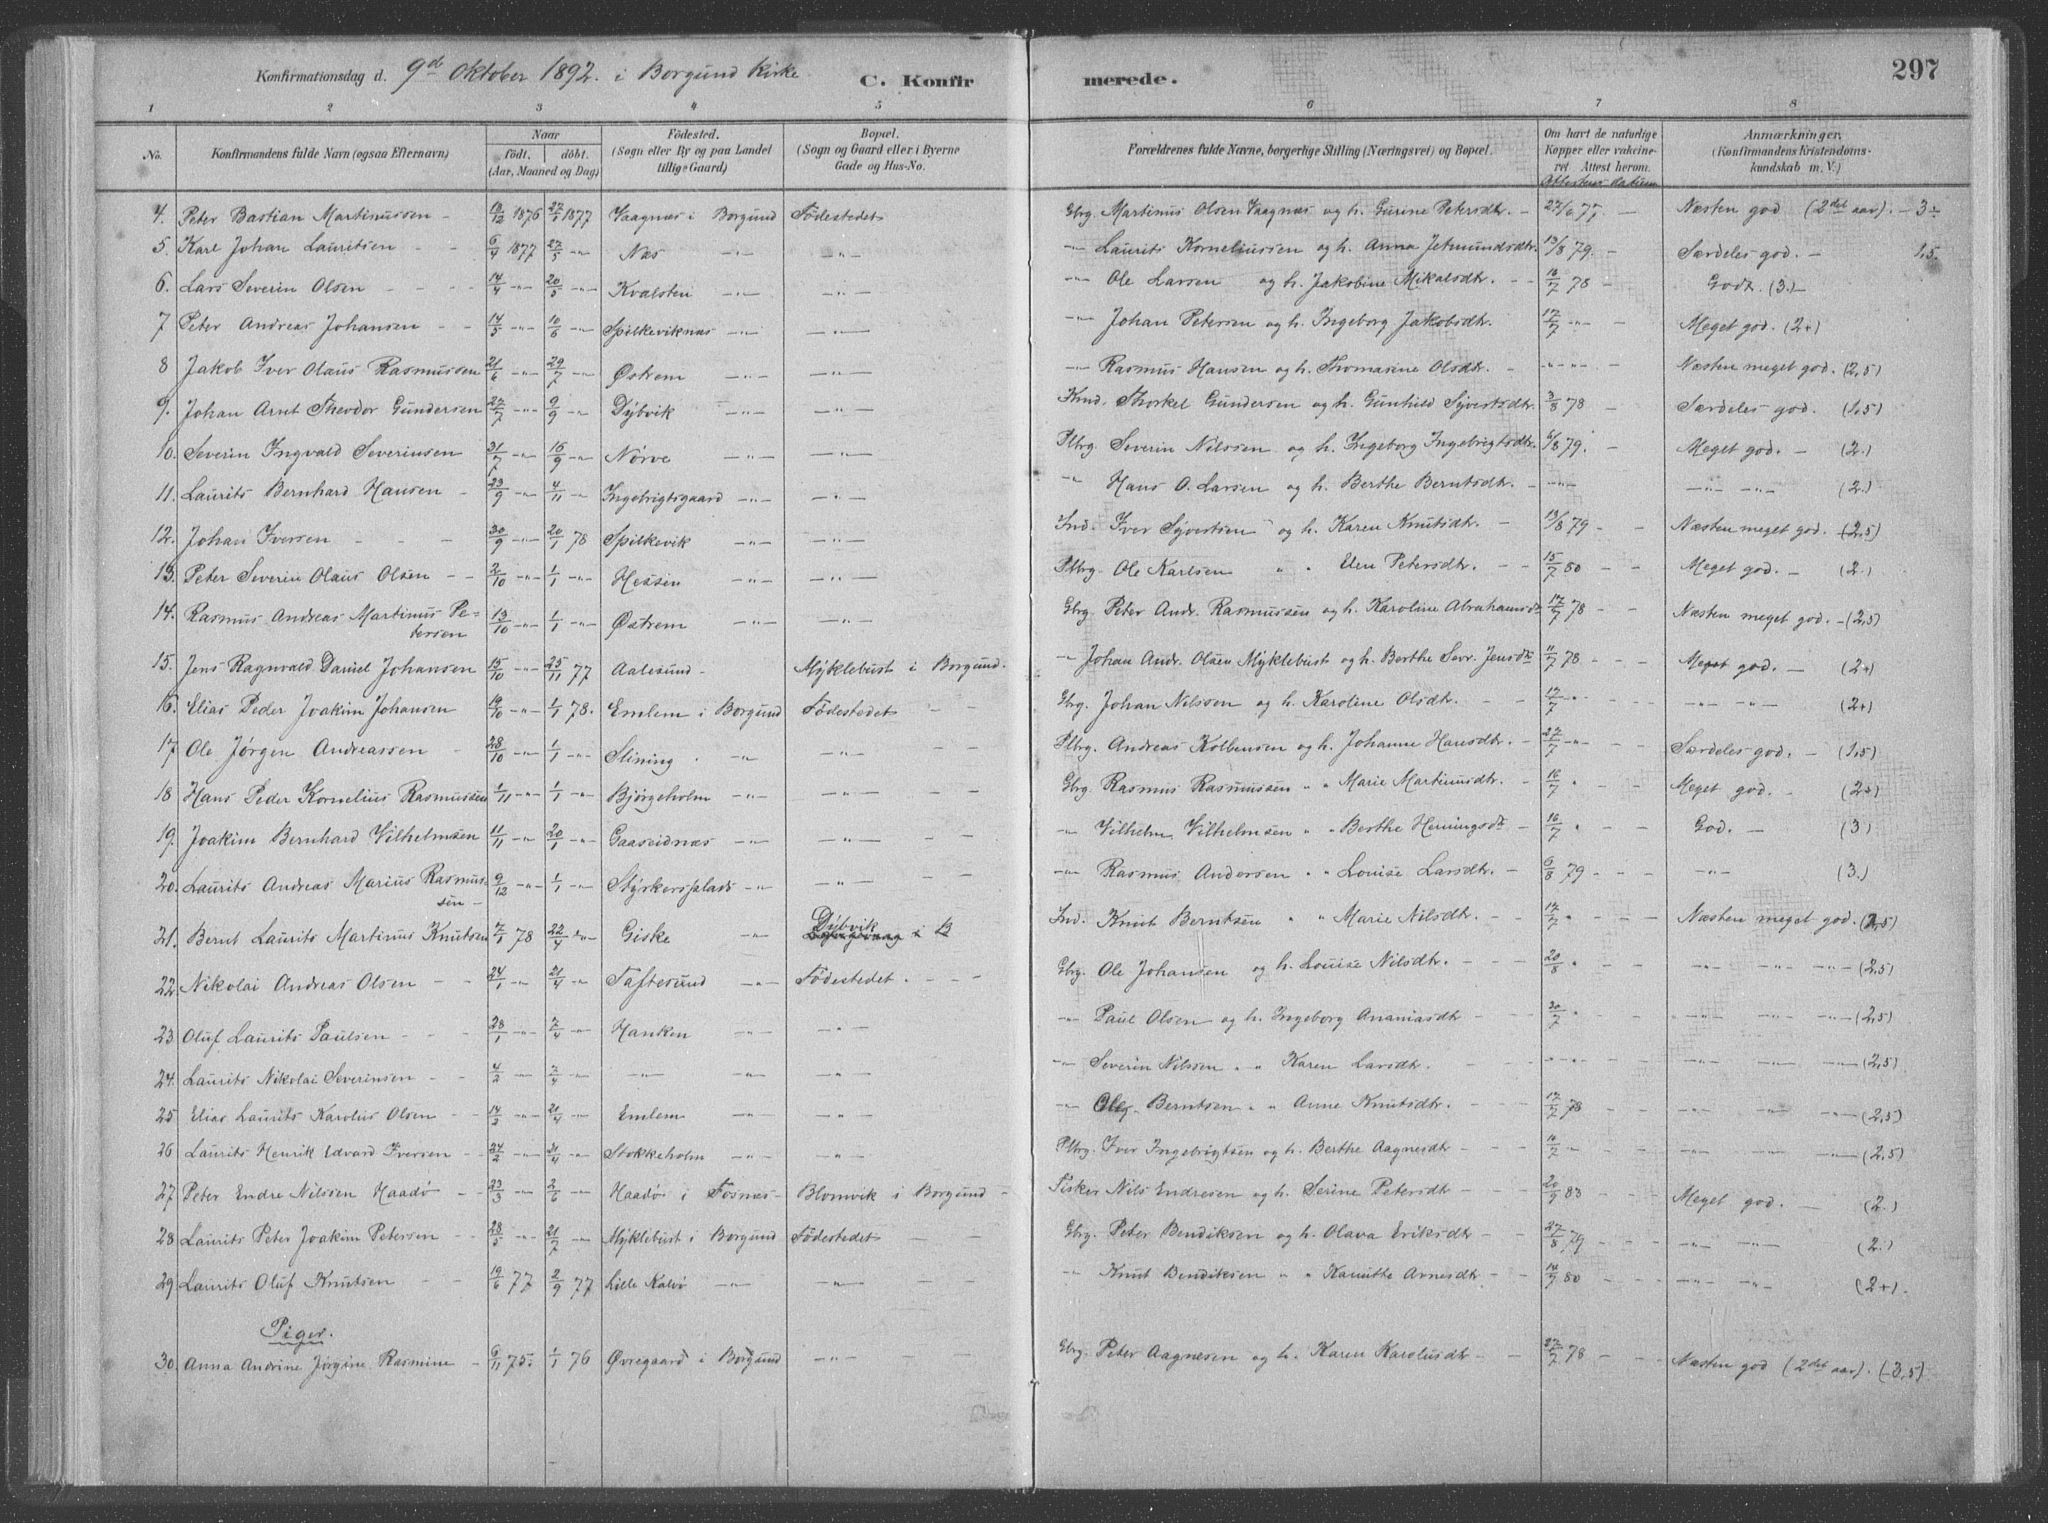 Konfirmationsdag d. 9de Oktober 1892. i Borgund Kirke. C. Konfir merede. 297
1 2 3 4 5 6 7 8
No. Konfirmandens fulde Navn (ogsaa Efternavn) Naar födt. döbt. (Aar, Maaned og Dag) Födested. (Sogn eller By og paa Landet tillige Gaard) Bopæl. (Sogn og Gaard eller i Byerne Gade og Hus-No. Forældrenes fulde Navne, borgerlige Stilling (Næringsvei) og Bopæl. Om havt de naturlige Kopper eller vakcineret Attest herom. Attestens datum Anmærkninger. (Konfirmandens Kristendomskundskab m. V.)
4. Peter Bastian Martinussen - 18/12 1876 27/1 1877 Vaagnæs i Borgund Födestedet Gbrg. Martinus Olsen Vaagnæs og h. Gurine Petersdtr. - 27/6 77 - Næsten god (2det aar). - 3÷
5. Karl Johan Lauritsen - - 6/4 1877 27/5 -"- Næs -"- -"- -"- Laurits Korneliussen og h. Anna Jetmundsdtr. 13/8 79. - Særdeles god. - 1,5.
6. Lars Severin Olsen - - - 14/4 -"- 20/5 -"- Kvalsten -"- -"- -"- Ole Larsen og h. Jakobine Mikalsdtr. - 18/7 78 - Godt. (3.) -
7 Peter Andreas Johansen - - 14/5 -"- 10/6 -"- Spilkeviknæs -"- -"- -"- Johan Petersen og h. Ingeborg Jakobsdtr. 17/7 -"- - Meget god. (2+)
8 Jakob Iver Olaus Rasmussen 21/6 -"- 29/7 -"- Østrem -"- -"- -"- Rasmus Hansen og h. Thomasine Olsdtr. -"- -"- - Næsten meget god. (2,5)
9. Johan Arnt Theodor Gundersen 27/7 -"- 9/9 -"- Dybvik -"- -"- Kmd. Thorkel Gundersen og h. Gunhild Syvertsdtr. 3/8 78 - Særdeles god. (1,5)
10. Severin Ingvald Severinsen 31/7 -"- 16/9 -"- Nørve -"- -"- Plbrg. Severin Nilssen og h. Ingeborg Ingebrigtsdtr. 6/8 79. Meget god. - (2.)
11. Laurits Bernhard Hansen - 23/9 -"- 4/11 -"- Ingebrigtsgaard -"- -"- " Hans O. Larsen og h. Berthe Berntsdtr. - -"- -"- -"- (2.)
12. Johan Iversen - - - 30/9 -"- 20/1 78 Spilkevik -"- -"- Ind. Iver Syvertsen og h. Karen Knutsdtr. - 13/8 79 - - Næsten meget god. (2,5)
13. Peter Severin Olaus Olsen - - 2/10 -"- 1/1 -"- Hessen -"- -"- Plbrg. Ole Karlsen " " Elen Petersdtr. - - 15/7 80 - - Meget god. - (2.)
14. Rasmus Andreas Martinus Pe-
tersen 13/10 -"- 1/1 -"- Østrem -"- -"- Gbrg. Peter Andr. Rasmussen og h. Karoline Abrahamsdtr. 17/7 78 - - Næsten meget god. - (2,5)
15. Jens Ragnvald Daniel Johansen 15/10 -"- 25/11 77 Aalesund - Myklebust i Borgund. -"- Johan Andr. Olsen Myklebust og h. Berthe Sevr. Jensdtr. 11/7 78 - - Meget god. - (2+)
16. Elias Peder Joakim Johansen 19/10 -"- 1/1 78. Emlem i Borgund Födestedet - - Gbrg. Johan Nilssen og h. Karoline Olsdtr. - - 17/7 " - - -"- -"- (2+)
17. Ole Jørgen Andreassen - 28/10 -"- 1/1 -"- Slining -"- -"- - - Plbrg. Andreas Kolbensen og h. Johanne Hansdtr. - 27/7 -"- - Særdeles god. - (1,5)
18 Hans Peder Kornelius Rasmussen 1/11 -"- 1/1 -"- Bjørgeholm -"- -"- - - Gbrg. Rasmus Rasmussen " " Marie Martinusdtr. - 16/7 " - - Meget god. - (2+)
19. Joakim Bernhard Vilhelmsen 11/11 -"- 20/1 -"- Gaaseidnæs -"- -"- - - -"- Vilhelm Vilhelmsen " " Berthe Henningsdtr. - 16/7 " - - God. - (3)
20. Laurits Andreas Marius Rasmus-
sen - 9/12 -"- 1/1 -"- Styrkersplads -"- -"- - -"- Rasmus Andersen " " Louise Larsdtr. - - 6/8 79 - - -"- (3.)
21. Bernt Laurits Martinus Knutsen 7/1 78 22/4 -"- Giske -"- Dybvik i B Ind. Knut Berntsen " " Marie Nilsdtr. - - 17/7 " - - Næsten meget god. (2,5)
22. Nikolai Andreas Olsen - - 24/1 -"- 21/4 -"- Taftesund -"- Födestedet. - - Gbrg. Ole Johansen og h. Louise Nilsdtr. - - - 20/8 " - - -"- -"- -"- (2,5)
23 Oluf Laurits Paulsen - - 28/1 -"- 7/4 -"- Hanken -"- -"- -"- Paul Olsen og h. Ingeborg Ananiasdtr - - 20/7 " - - -"- -"- -"- (2,5)
24. Laurits Nikolai Severinsen - - 4/2 -"- 7/4 -"- -"- -"- -"- -"- Severin Nilssen " " Karen Larsdtr. - - -"- - - -"- -"- -"- (2,5)
25 Elias Laurits Karolus Olsen - 14/2 -"- 21/4 -"- Emlem -"- -"- -"- Ole Berntsen " " Anne Knutsdtr. - - - 17/7 78 - - -"- -"- -"- (2,5)
26 Laurits Henrik Edvard Iversen - - 24/2 -"- 21/4 -"- Stokkeholm -"- -"- Plbrg. Iver Ingebrigtsen og h. Berthe Aagnesdtr - - 10/7 " - - -"- -"- -"- (2,5)
27 Peter Endre Nilssen Haadö - - 23/3 -"- 2/6 -"- Haadö i Fosnæs - Blomvik i Borgund - Fisker Nils Endresen og h. Serine Petersdtr - - 20/9 83 - - Meget god. - (2.)
28 Laurits Peter Joakim Petersen - - 28/5 -"- 21/7 -"- Myklebust i Borgund Födestedet - - Gbrg. Peter Bendiksen og h. Olava Eriksdtr - - 27/8 79 - - -"- -"- (2.)
29 Laurits Oluf Knutsen - - 19/6 77 2/9 77 Lille Kalvö -"- -"- - - " Knut Bendiksen " " Kanutte Arnesdtr - - 14/9 80 - - -"- -"- (2+).
Piger.
30. Anna Andrine Jørgine Rasmine - 6/11 75. 1/1 76 Øvregaard i Borgund -"- - - Gbrg. Peter Aagnesen og h. Karen Karolusdtr - - 27/7 78 - - Næsten god (2det aar). (-3,5)